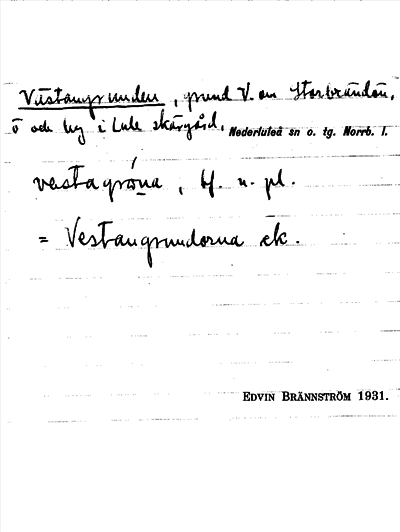 Västangrunden, grund V. om Storbrändön,
ö och by i Lule skärgård. Nederluleå sn o. tg. Norrb. l.
västagrона, bf. n. pl.
= Vestangrundorna ek.
EDVIN BRÄNNSTRÖM 1931.